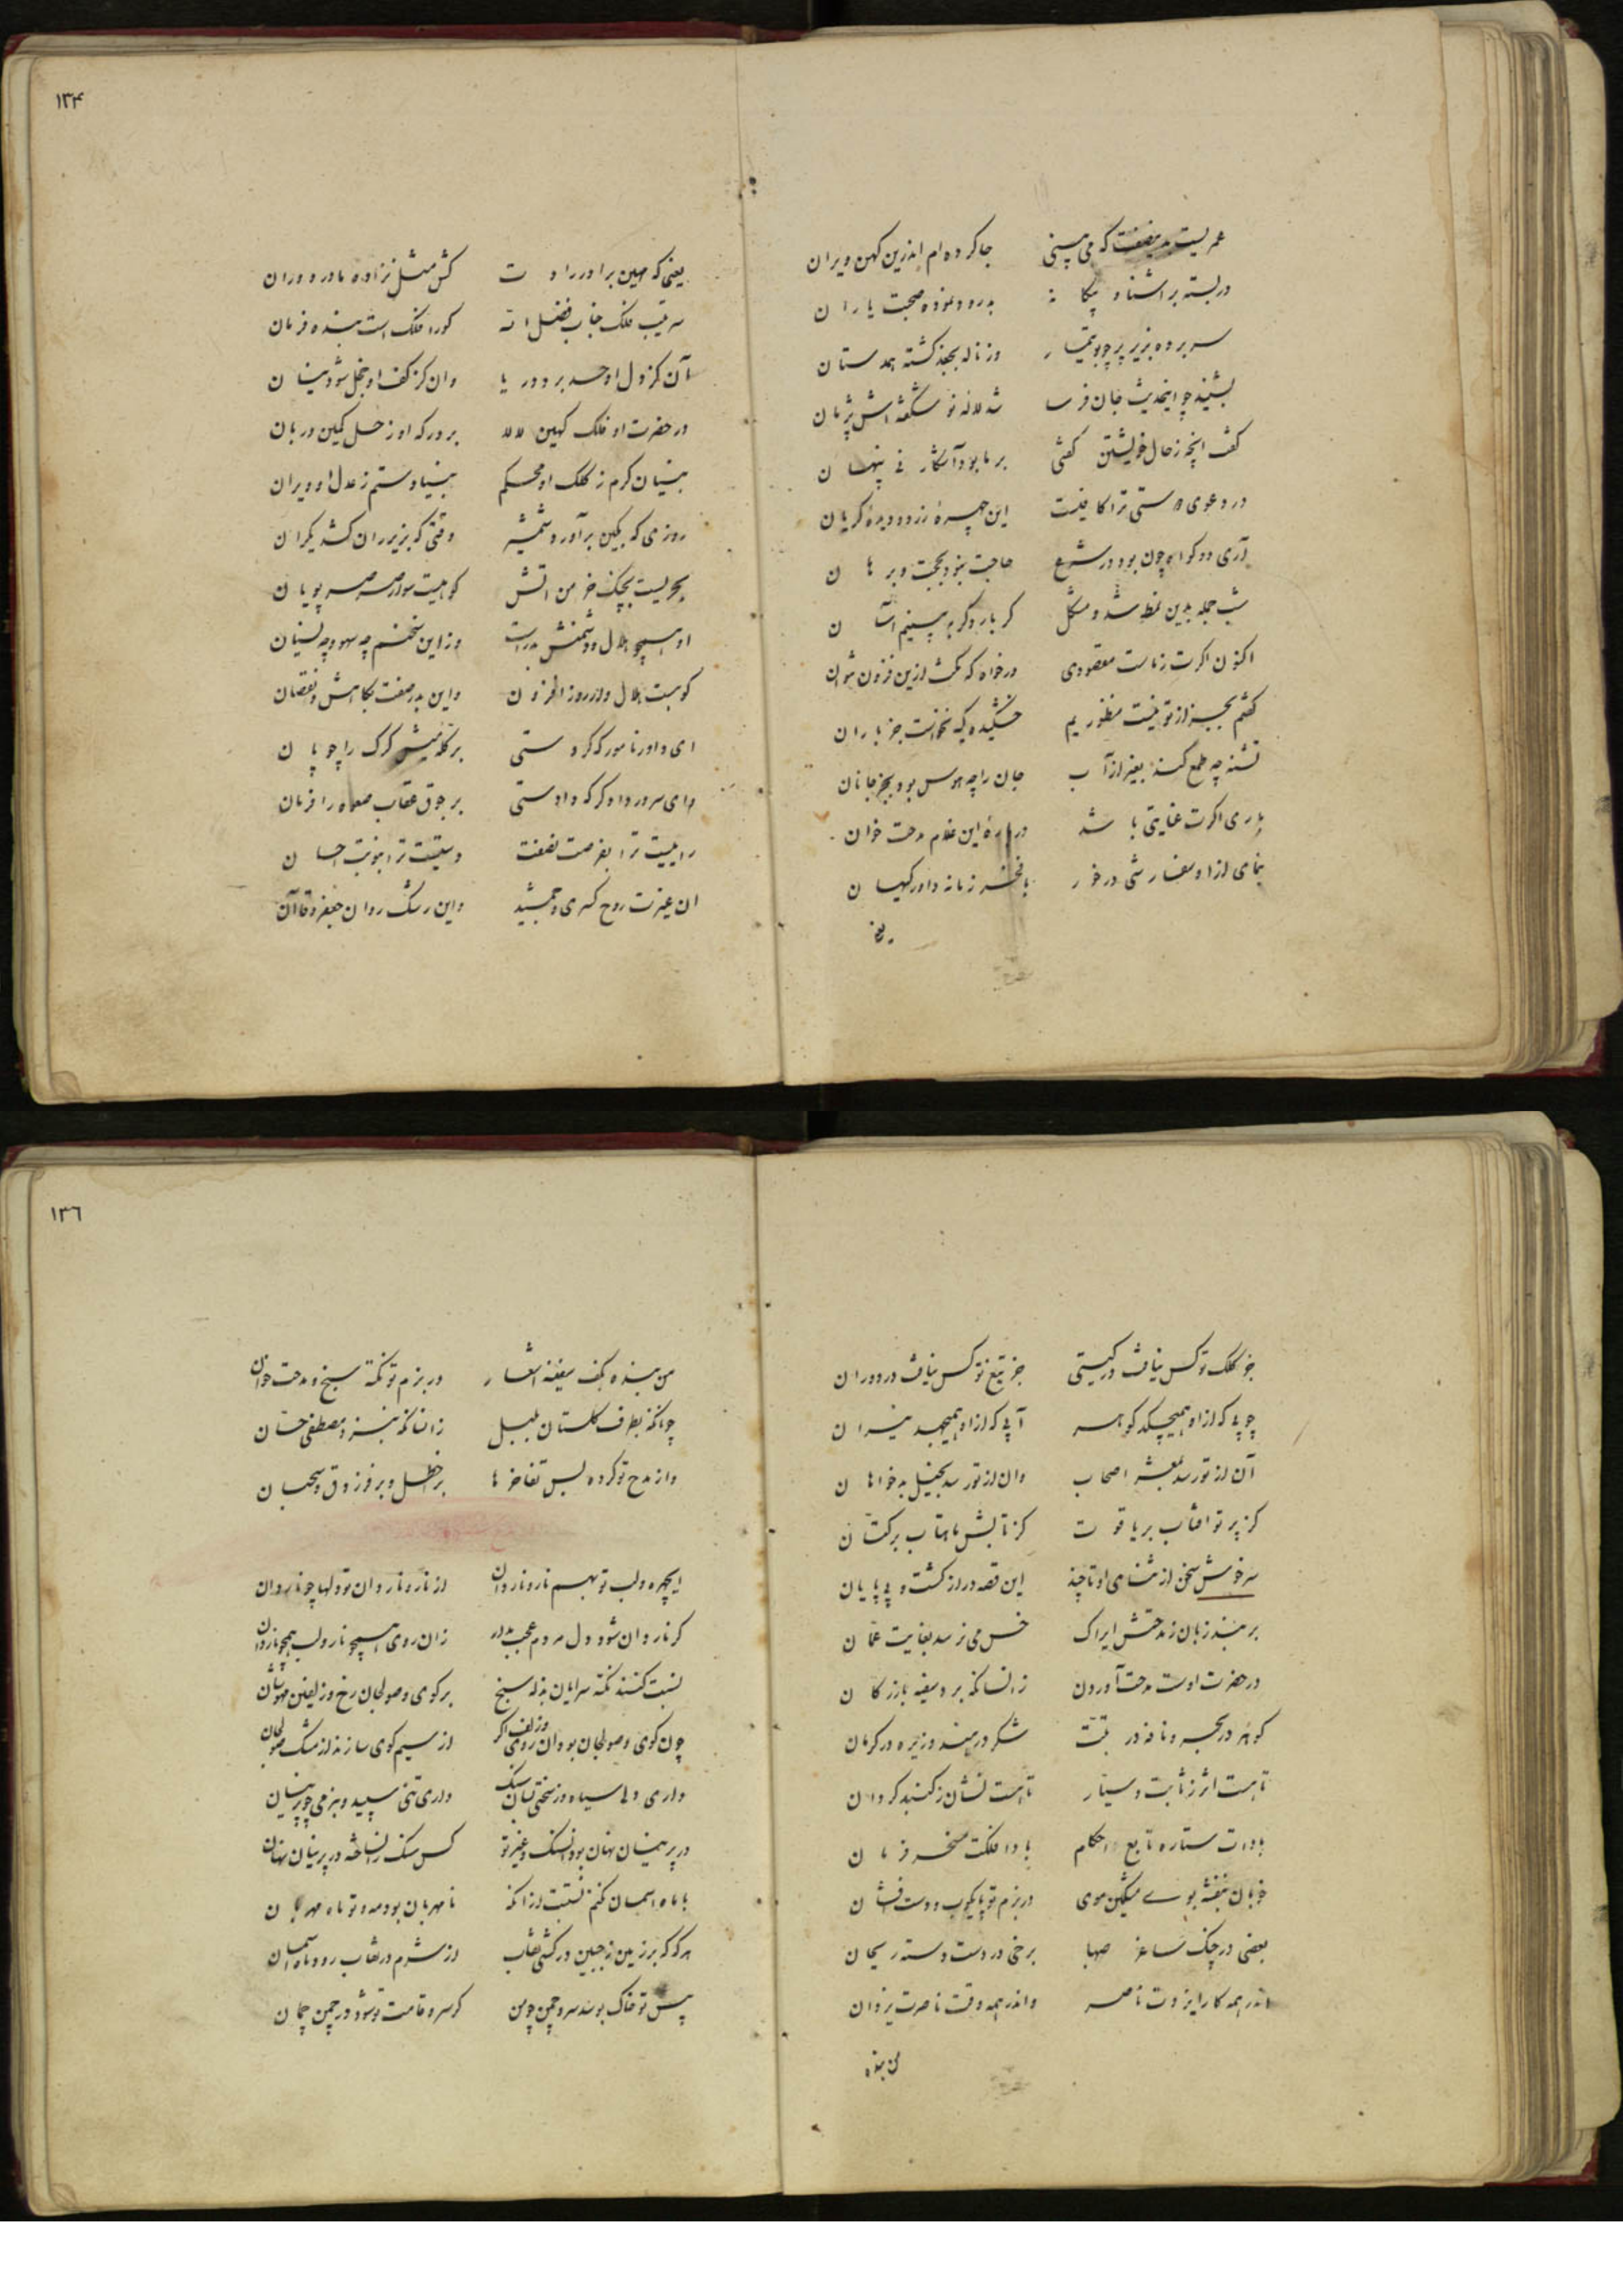 عمریست بدینصفت که می بینی جا کرده ام اندرین کهن ویران
در بسته بر اشنا و بیکانه بدرود نموده صحبت یاران
سر برده بزیر پر چو بوتیمار وز ناله بجغد کشته همدستان
بشنید چو اینحدیث جان فرسا شد لاله نو شکفته اش پژمان
کفت انچه ز حال خویشتن کفتی بر ما بود آشکار نی پنهان
در دعوی دوستی ترا کافیست این چهرهٔ زرد و دیدهٔ کریان
آری دو کواه چون بود در شرع حاجت نبود بحجت و برهان
شب جمله بدین نمط شد و مشکل کر بار دکر به بینیم آسان
اکنون اکرت زماست مقصودی درخواه که مکث ازین فزون نتوان
کفتم بجز از تو نیست منظوریم خشکیده کیه نخواست جز باران
تشنه چه طمع کند بغیر از آب جان را چه هوس بود بجز جانان
باری اکرت عنایتی باشد دربارهٔ این غلام مدحت خوان
بنمای ازاو سفارشی درخور با فخر زمانه داور کیهان
یعنی
۱۳۴
یعنی که مهین برادر رادت کش مثل نزاده مادر دوران
سرتیپ فلک جناب فضل اله کورا فلک است بنده فرمان
آن کز دل او حسد برد دریا وان کز کف او خجل شود نیسان
در حضرت او فلک کهین لالا بر درکه او زحل کمین دربان
بنیان کرم ز کلک او محکم بنیاد ستم ز عدل او ویران
روزی که بکین برآورد شمشیر وقتی که بزیر ران کشد یکران
بحریست بچنک خرمن اتش کوهیست سوار صرصر پویان
او همچو هلال و دشمنش بدراست وزاین سخنم چه سهو و چه نسیان
کو هست هلال واز روز افزون واین بدر صفت بکاهش و نقصان
ای داور نامور که کردستی بر کله میش کرک را چوپان
وای سرور دادکر که دادستی بر جوق عقاب صعوه را فرمان
راییست ترا بفرصت نصفت دستیست ترا بنوبت احسان
ان غیرت روح کسری و جمشید واین رشک روان جعفر و قاآن
جز کلک تو کس نیافت در کیتی جز تیغ تو کس نیافت در دوران
چوبی که ازاو همیچکد کوهر آبی که ازاو همیجهد نیران
آن از تو رسد بمعشر اصحاب وان از تو رسد بخیل بدخواهان
کز پرتو افتاب بر یاقوت کز تابش ماهتاب بر کتان
سرخوش سخن از ثنای او تا چند این قصه دراز کشت و بی پایان
بربند زبان ز مدحتش ایراک خس می نرسد بغایت عمان
در حضرت اوست مدحت آوردن زانسانکه برد سفیه بازرکان
کوهر در بحر و نافه در تبت شکر در هند و زیره در کرمان
تا هست اثر ز ثابت و سیار تا هست نشان ز کنبد کردان
بادات ستاره تابع احکام بادا فلکت مسخر فرمان
خوبان بنفشه بوی مشکین موی در بزم تو پایکوب و دست فشان
بعضی در چنک ساغر صهبا برخی در دست دسته ریحان
اندر همه کار ایزدت ناصر واندر همه وقت ناصرت یزدان
من بنده
۱۳۶
من بنده بکف سفینه اشعار در بزم تو نکته سنج و مدحت خوان
چونانکه بطرف کلستان بلبل زانسانکه بنزد مصطفی حسان
واز مدح تو کرده بس تفاخرها بر اخطل و بر فرزدق و سحبان
ایچهره و لب تو بهم نار و ناردان از نار و ناردان تو دلها چو ناردان
کر ناردان شود دل مردم عجب مدار زان روی همچو نار و لب همچو ناردان
نسبت کنند نکته سرایان بذله سنج بر کوی و صولجان رخ و زلفین مهوشان
چون کوی و صولجان بود ان روی وزلف اکر از سیم کوی سازند از مشک صولجان
داری دلی سیاه و ز سختی بسان سنک داری تنی سپید و بنرمی چو پرنیان
در پرنیان نهان بود انسنک و غیر تو کس سنک را نساخته در پرنیان نهان
با ماه اسمان کنم نسبت ازانکه نامهربان بود مه و تو ماه مهربان
هرکه که بر زمین ز جبین درکشی نقاب از شرم در نقاب رود ماه آسمان
پیش تو خاک بوسد سرو چمن چو من کر سرو قامت تو شود در چمن چمان